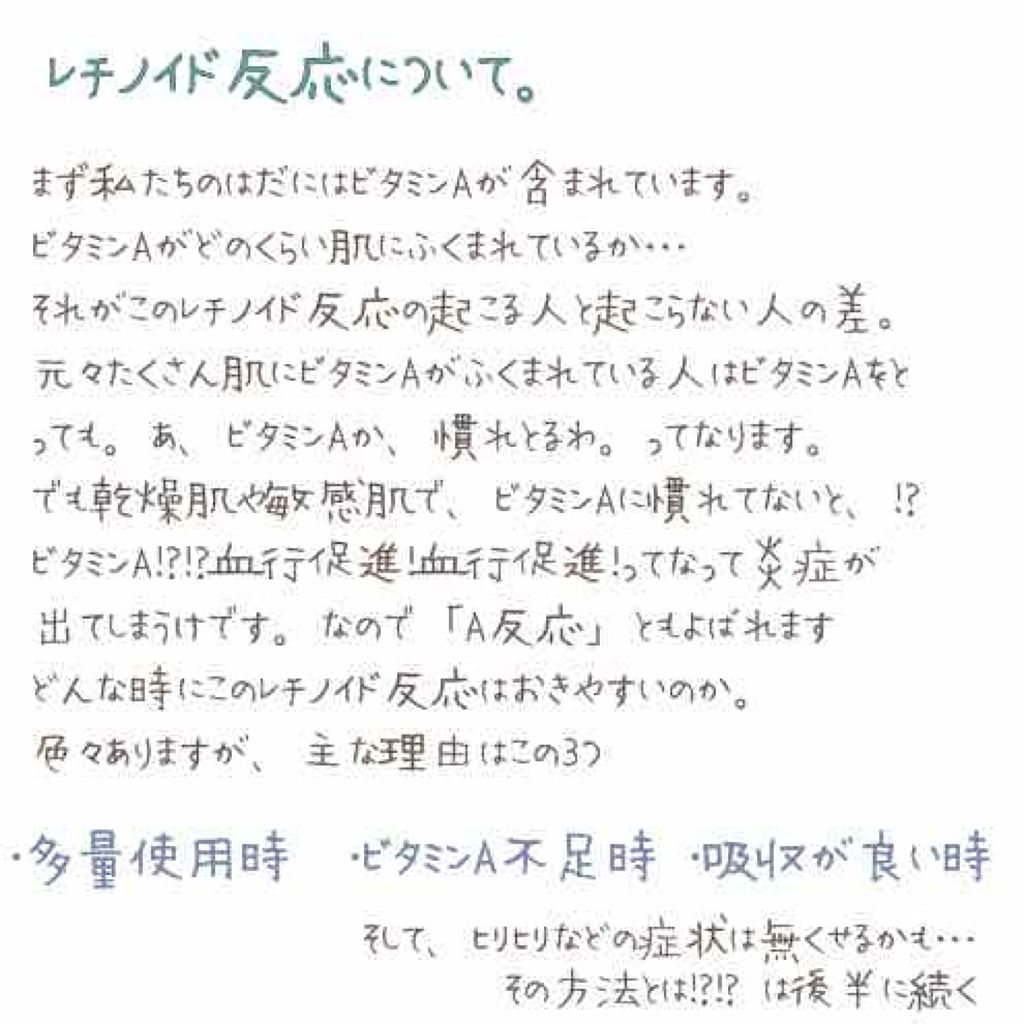 レチノイド反応について。
まず私たちのはだにはビタミンAが含まれています。
ビタミンAがどのくらい肌にふくまれているか・・・
それがこのレチノイド反応の起こる人と起こらない人の差。
元々たくさん肌にビタミンAがふくまれている人はビタミンAをと
っても。あ、ビタミンAか、慣れとるわ。ってなります。
でも乾燥肌や敏感肌で、ビタミンAに慣れてないと、!?
ビタミンA!?!?血行促進!血行促進!ってなって炎症が
出てしまうけです。なので「A反応」ともよばれます
どんな時にこのレチノイド反応はおきやすいのか。
色々ありますが、主な理由はこの3つ
・多量使用時 ・ビタミンA不足時 ・吸収が良い時
そして、ヒリヒリなどの症状は無くせるかも・・・
その方法とは!?!? は後半に続く